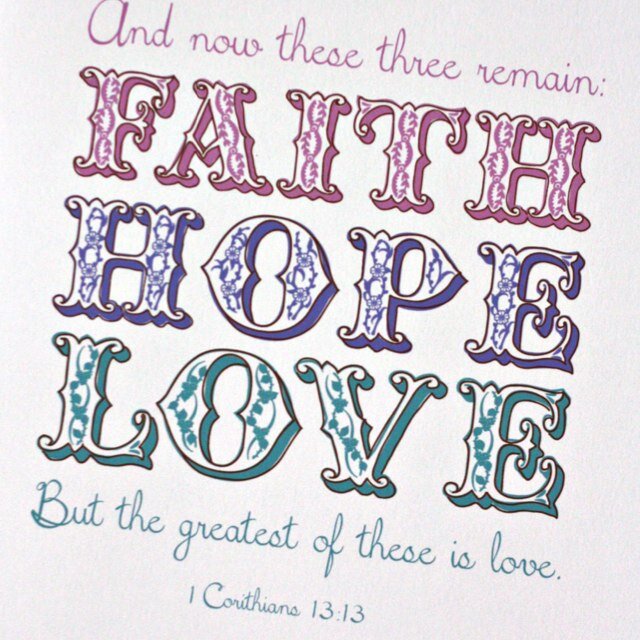 And now these three remain:
FAITH
HOPE
LOVE
But the greatest of these is love.
1 Corithians 13:13